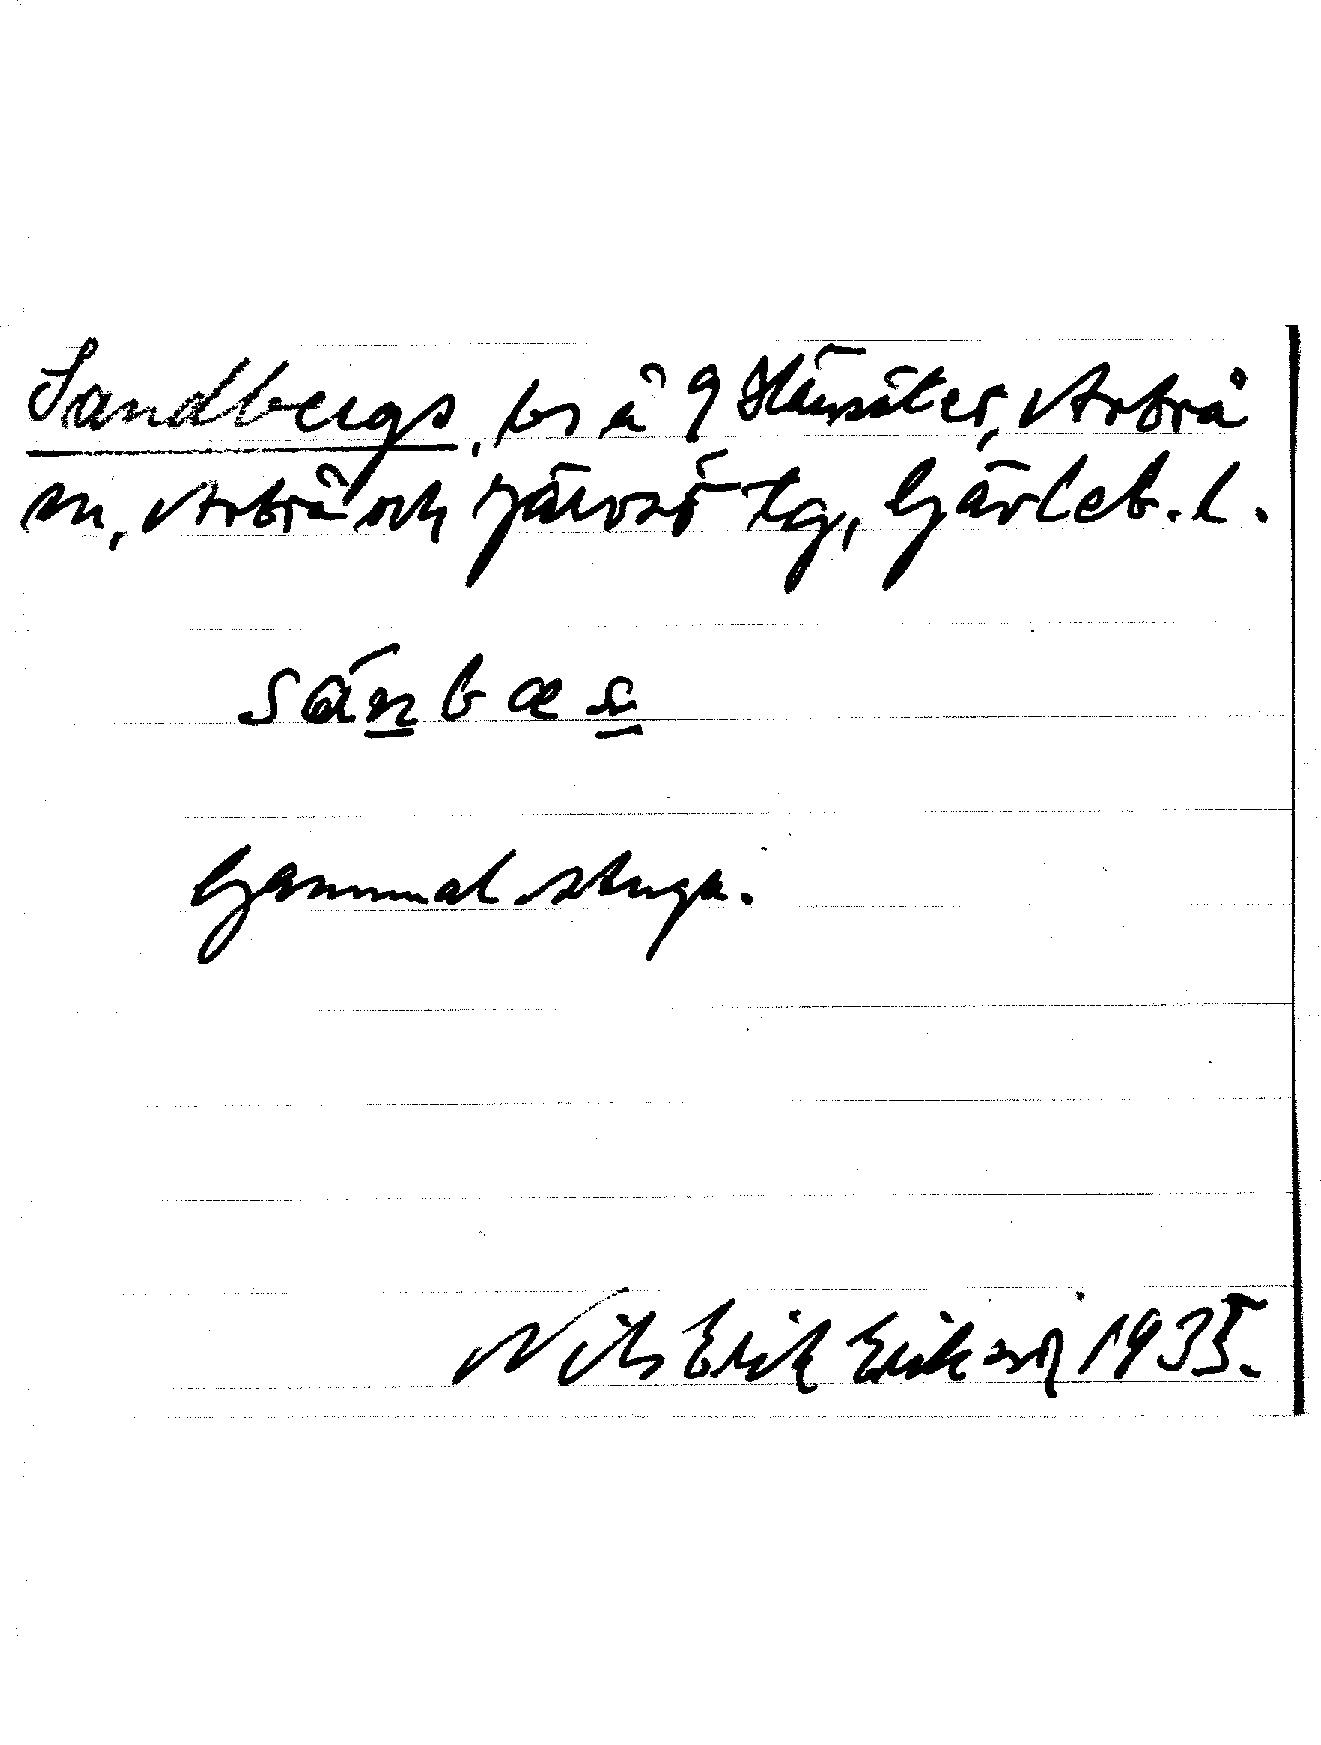 Sandbergs, hs å 9 Hänsäter, Arbrå
sn, Arbrå och Järvsö tg, Gävleb. l.
sánbæs
Gammal stuga.
Nils Erik Erikson 1935.